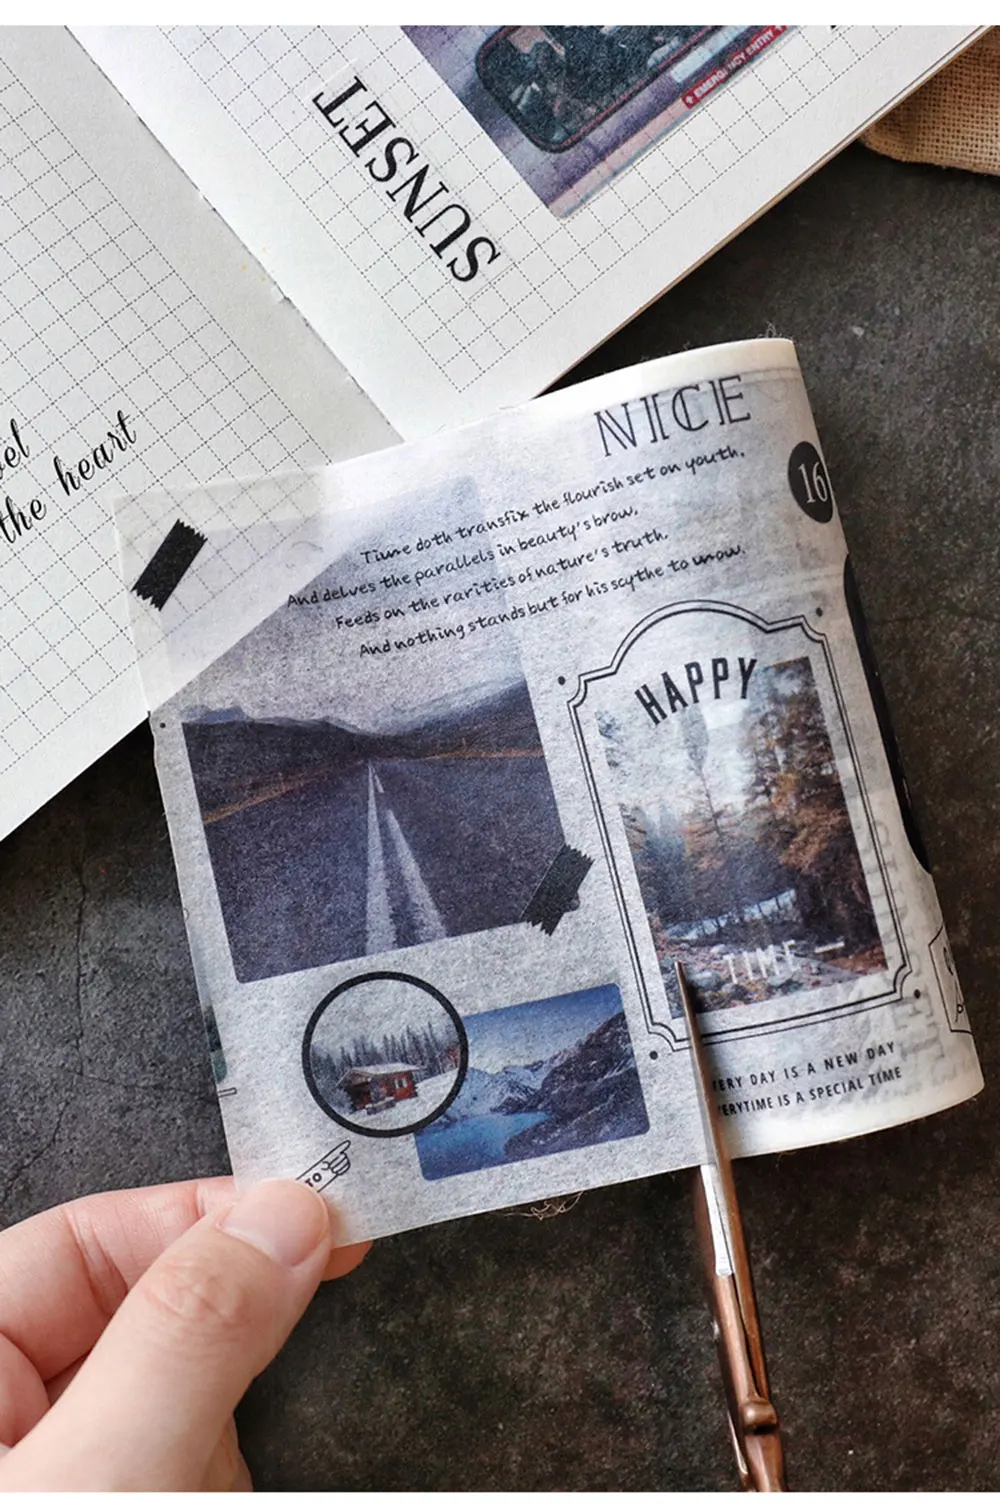 SUNSET
EMERGENCY ENTRY
the heart
NICE
16
Time doth transfix the flourish set on youth,
And delves the parallels in beauty's brow,
Feeds on the rarities of nature's truth,
And nothing stands but for his scythe to mow.
HAPPY
TIME
TO
ERY DAY IS A NEW DAY
ERYTIME IS A SPECIAL TIME